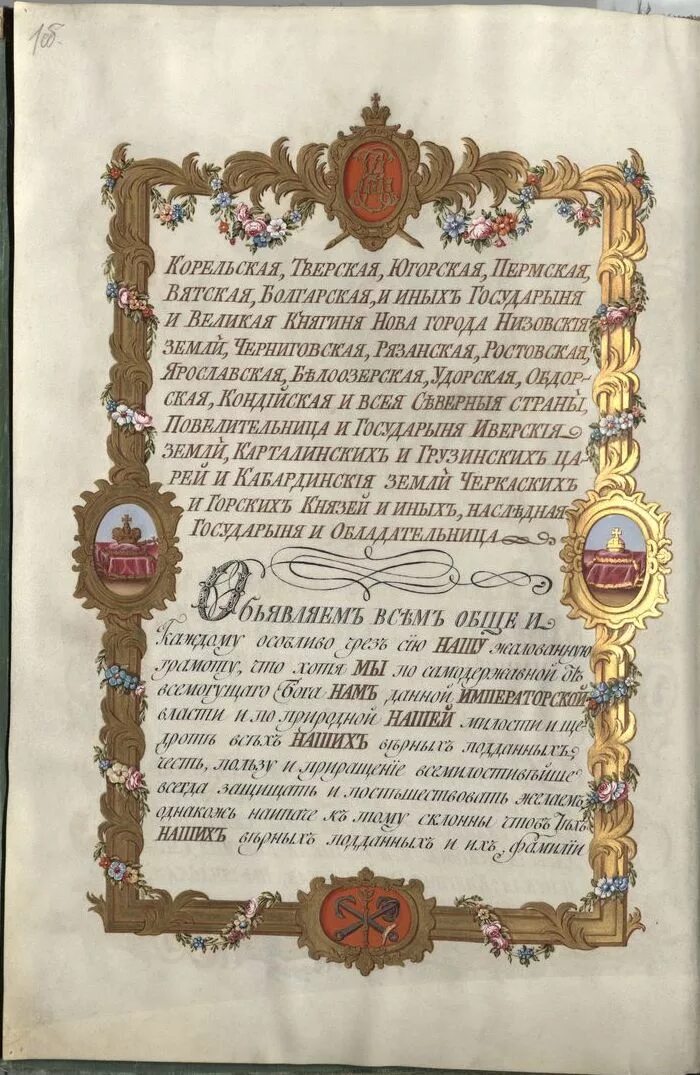 1об.
Корельская, Тверская, Югорская, Пермская,
Вятская, Болгарская, и иныхъ Государыня
и Великая Княгиня Нова города Низовскія
земли, Черниговская, Рязанская, Ростовская,
Ярославская, Бѣлоозерская, Удорская, Обдор-
ская, Кондійская и всея Сѣверныя страны,
Повелительница и Государыня Иверскія
земли, Карталинскихъ и Грузинскихъ ца-
рей и Кабардинскія земли Черкаскихъ
и Горскихъ Князей и иныхъ, наслѣдная
Государыня и Обладательница
Объявляемъ всѣмъ обще и
каждому особливо чрезъ сію НАШУ жалованную
грамоту, что хотя МЫ по самодержавной отъ
всемогущаго Бога НАМЪ данной ИМПЕРАТОРСКОЙ
власти и по природной НАШЕЙ милости и ще-
дротѣ всѣхъ НАШИХЪ вѣрныхъ подданныхъ
честь, пользу и приращеніе всемилостивѣйше
всегда защищать и поспѣшествовать желаемъ
однакожъ наипаче къ тому склонны чтобъ тѣхъ
НАШИХЪ вѣрныхъ подданныхъ и ихъ фамиліи